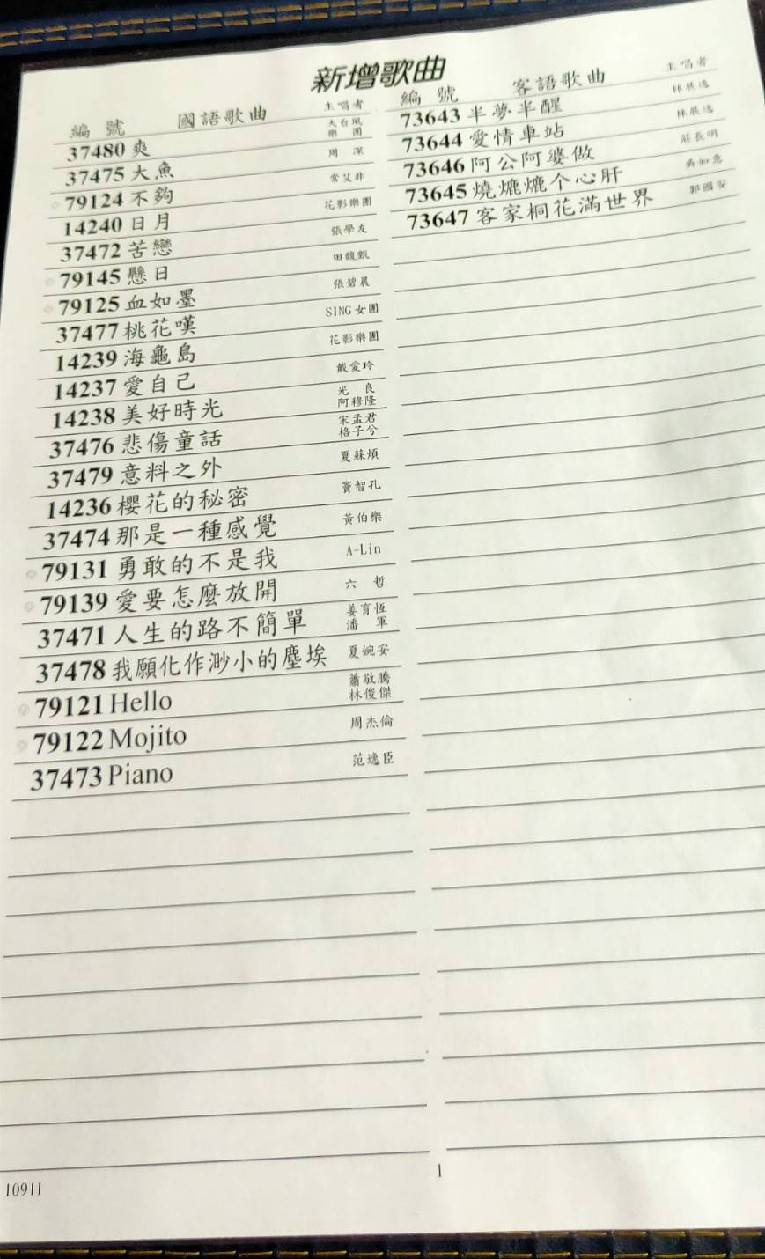 新增歌曲
編號 國語歌曲 主唱者
37480 爽 大台風樂團
37475 大魚 周深
79124 不夠 常艾非
14240 日月 花影樂團
37472 苦戀 張學友
79145 懸日 田馥甄
79125 血如墨 張碧晨
37477 桃花嘆 SING女團
14239 海龜島 花影樂團
14237 愛自己 戴愛玲
14238 美好時光 光良 阿穆隆
37476 悲傷童話 宋孟君 格子兮
37479 意料之外 夏婖煩
14236 櫻花的秘密 竇智孔
37474 那是一種感覺 黃伯樂
79131 勇敢的不是我 A-Lin
79139 愛要怎麼放開 六哲
37471 人生的路不簡單 姜育恆 潘軍
37478 我願化作渺小的塵埃 夏婉安
79121 Hello 蕭敬騰 林俊傑
79122 Mojito 周杰倫
37473 Piano 范逸臣
編號 客語歌曲 主唱者
73643 半夢半醒 林展逸
73644 愛情車站 林展逸
73646 阿公阿婆做 莊長明
73645 燒燶燶个心肝
73647 客家桐花滿世界 郭國安
1
10911